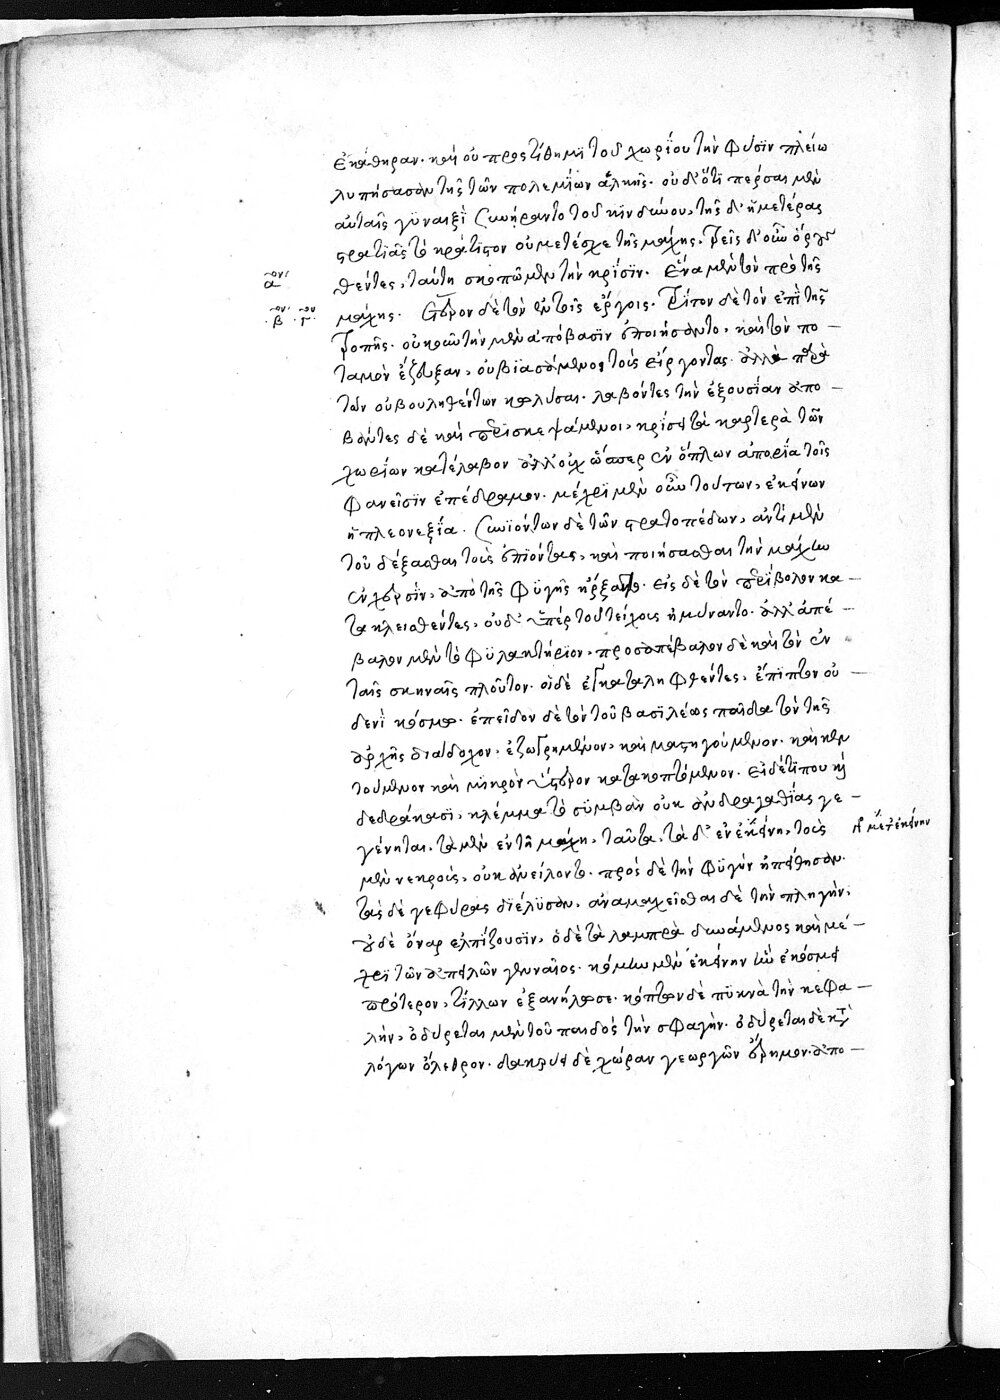 ἐκάθηραν. καὶ οὐ προστίθημι τοῦ χωρίου τὴν φύσιν πλείω
λυπήσασαν τῆς τῶν πολεμίων ἀλκῆς. οὐδ' ὅτι πέρσαι μὲν
αὐταῖς γυναιξὶ συνήραντο τοῦ κινδύνου, τῆς δ' ἡμετέρας
στρατιᾶς τὸ κράτιστον οὐ μετέσχε τῆς μάχης. τρεῖς δ' οὖν
θέντες, ταύτῃ σκοπῶμεν τὴν κρίσιν. ἕνα μὲν τὸν πρὸ τῆς
μάχης. ἕτερον δὲ τὸν ἐν τοῖς ἔργοις. τρίτον δὲ τὸν ἐπὶ τῆς
τροπῆς. οὐκοῦν τὴν μὲν ἀπόβασιν ἐποιήσαντο, καὶ τὸν πο
ταμὸν ἔζευξαν, οὐ βιασάμενοι τοὺς εἴργοντας. ἀλλὰ παρὰ
τῶν οὐ βουληθέντων κωλῦσαι. λαβόντες τὴν ἐξουσίαν ἀπο
βάντες δὲ καὶ περισκεψάμενοι, κρίσει τὰ καρτερὰ τῶν
χωρίων κατέλαβον ἀλλ' οὐχ ὥσπερ ἐν ὅπλων ἀπορίᾳ τοῖς
φανεῖσιν ἐπέδραμον. μέχρι μὲν οὖν τούτων, ἐκείνων
ἡ πλεονεξία. συνιόντων δὲ τῶν στρατοπέδων, ἀντὶ μὲν
τοῦ δέξασθαι τοὺς ἐπιόντας, καὶ ποιήσασθαι τὴν μάχην
ἐν χερσὶν, ἀπὸ τῆς φυγῆς ἤρξαντο. εἰς δὲ τὸν περίβολον κα
τακλεισθέντες, οὐδ' ὑπὲρ τοῦ τείχους ἠμύναντο. ἀλλ' ἀπέ
βαλον μὲν τὸ φυλακτήριον, προσαπέβαλον δὲ καὶ τὸν ἐν
ταῖς σκηναῖς πλοῦτον. οἱ δὲ ἐγκαταληφθέντες, ἔπιπτον οὐ
δενὶ κόσμῳ. ἐπεῖδον δὲ τὸν τοῦ βασιλέως παῖδα τὸν τῆς
ἀρχῆς διάδοχον, ἐζωγρημένον, καὶ μαστιγούμενον. καὶ κεν
τούμενον καὶ μικρὸν ὕστερον κατακοπτόμενον. εἰ δέ τί που καὶ
δεδράκασι, κλέμμα τὸ συμβὰν οὐκ ἀνδραγαθίας γε
γένηται. τὰ μὲν ἐν τῇ μάχῃ, ταῦτα. τὰ δ' ἐν ἐκείνῃ, τοὺς
ἢ μετ' ἐκείνην
μὲν νεκροὺς, οὐκ ἀνείλοντο. πρὸς δὲ τὴν φυγὴν ἠπείχθησαν.
τὰς δὲ γεφύρας διέλυσαν. ἀναμαχεῖσθαι δὲ τὴν πληγὴν,
οὐδὲ ὄναρ ἐλπίζουσιν. ὁ δὲ τὰ λαμπρὰ δυνάμενος καὶ μέ
χρι τῶν ἀπειλῶν γενναῖος. κόμην μὲν ἐκείνην ἣν ἐκόσμει
πρότερον, τίλλων ἐξανήλωσε. κόπτων δὲ πυκνὰ τὴν κεφα
λὴν, ὀδύρεται μὲν τοῦ παιδὸς τὴν σφαγήν. ὀδύρεται δὲ κατα
λόγων ὄλεθρον. δακρύει δὲ χώραν γεωργῶν ἔρημον. ἀπο